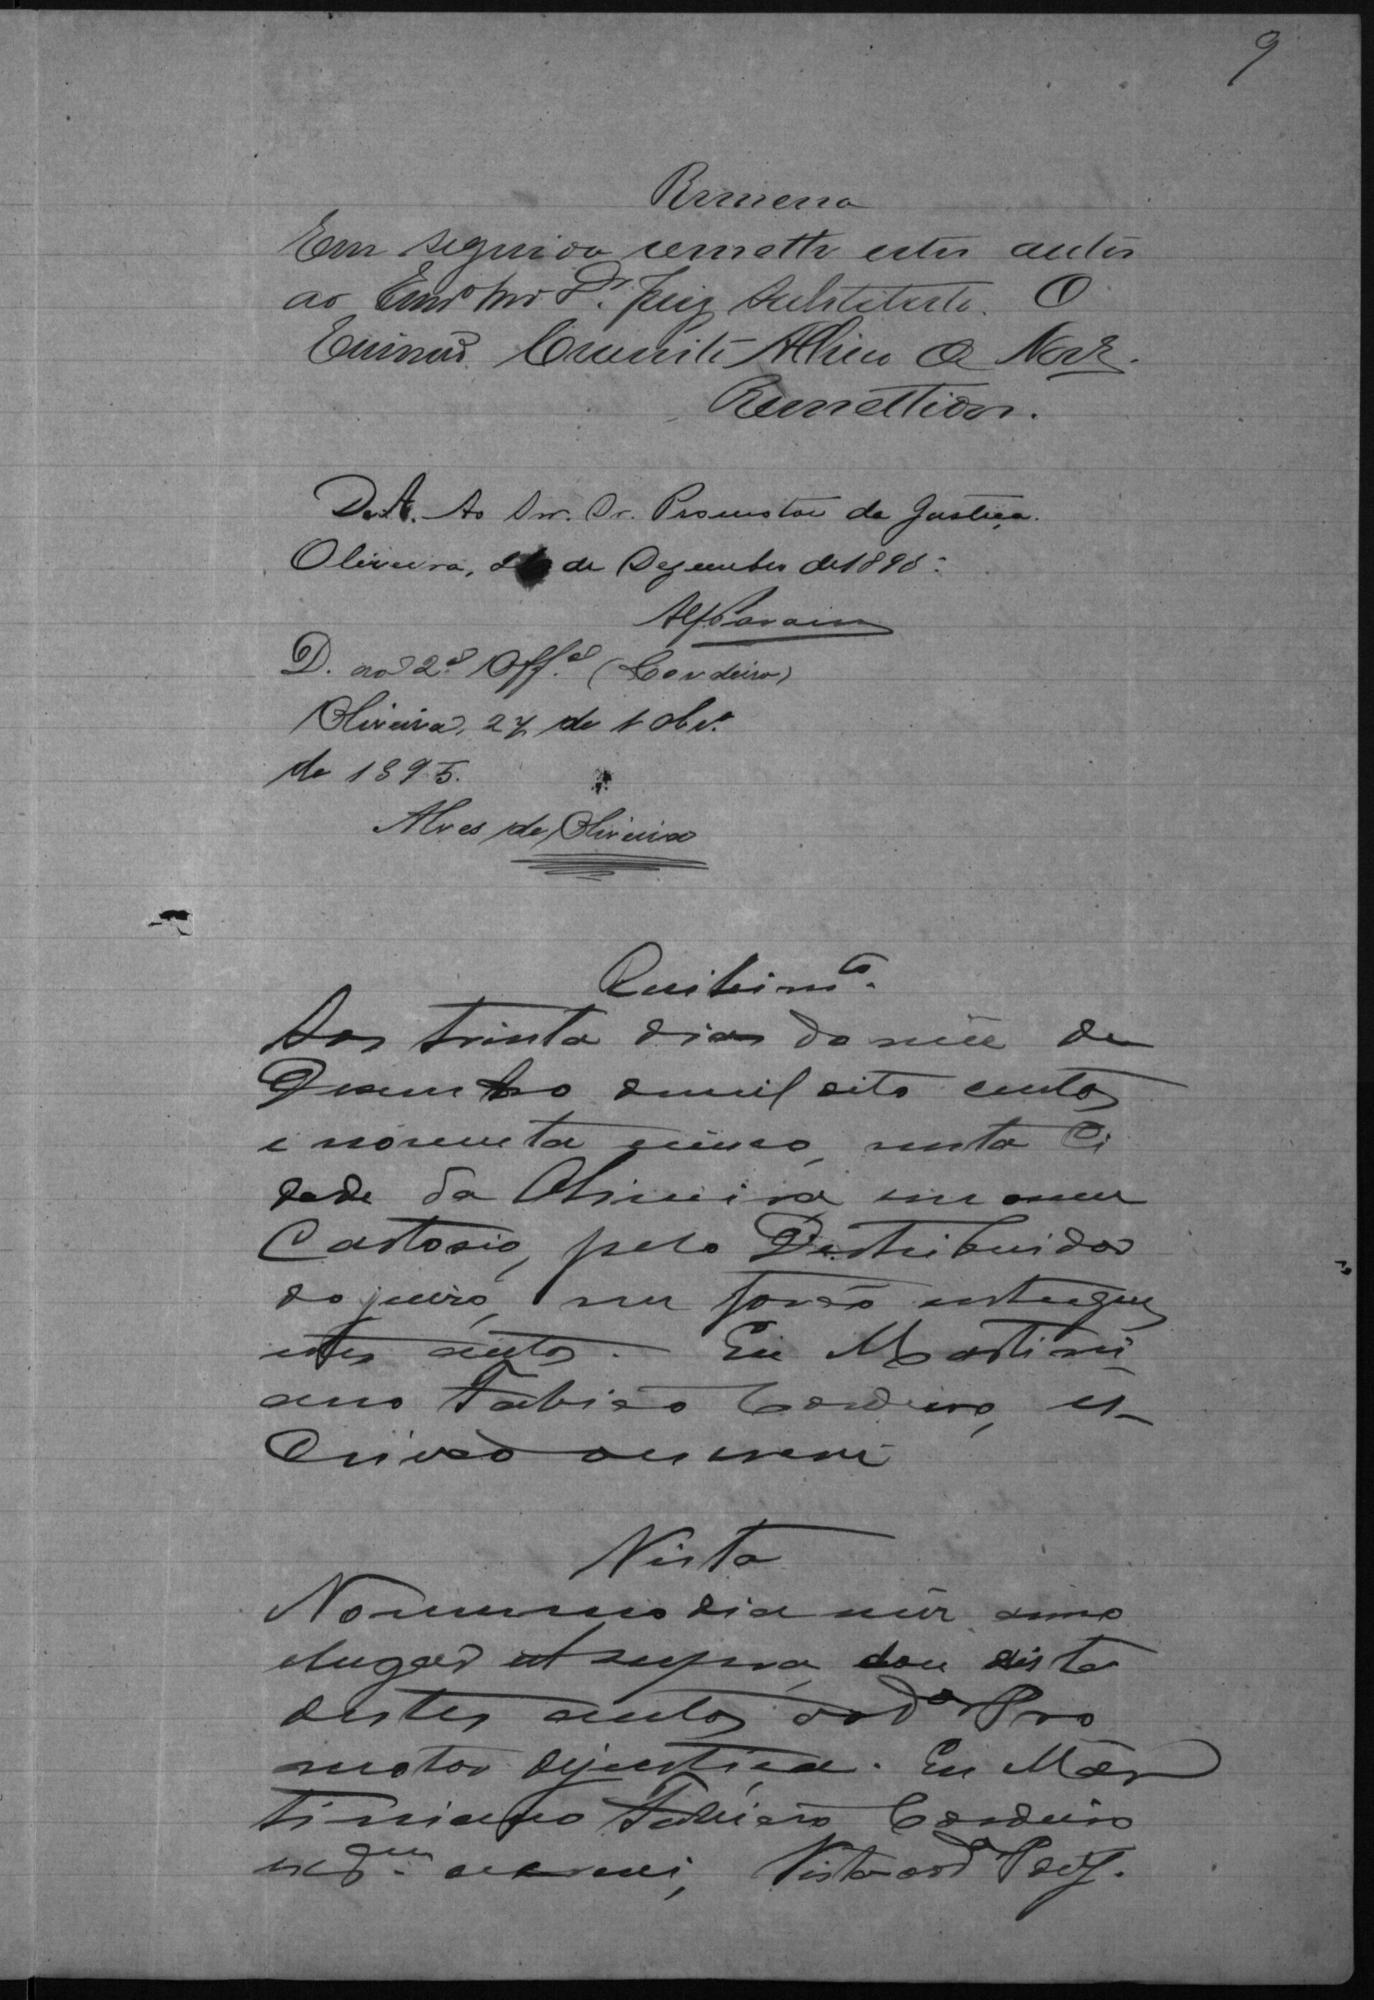 9
Remessa
Em seguida remetto estes autos
ao Dr. Juiz Substituto. O
Escrivão
Remettidos.
D. A. Ao Snr. Dr. Promotor da Justiça.
Oliveira, de Dezembro de 1895.
D. ao 2º Offal (Cordeiro)
Oliveira, 27 de 10bro
de 1895.
Alves de Oliveira
Recebimto.
Aos trinta dias do mez de
Dezembro de mil oito centos
e noventa cinco, nesta Ci
dade da Oliveira em o meu
Cartorio, pelo Distribuidor
do juizo, me forão entregues
estes autos. Eu Martini
ano Fabião Cordeiro, es-
crivão o escrevi
Vista
No mesmo dia mez anno
e lugar ut supra, dou vista
destes autos ao Dr Pro
motor de justiça. Eu Mar
tiniano Fabião Cordeiro
escrevi, Vista ao Dr